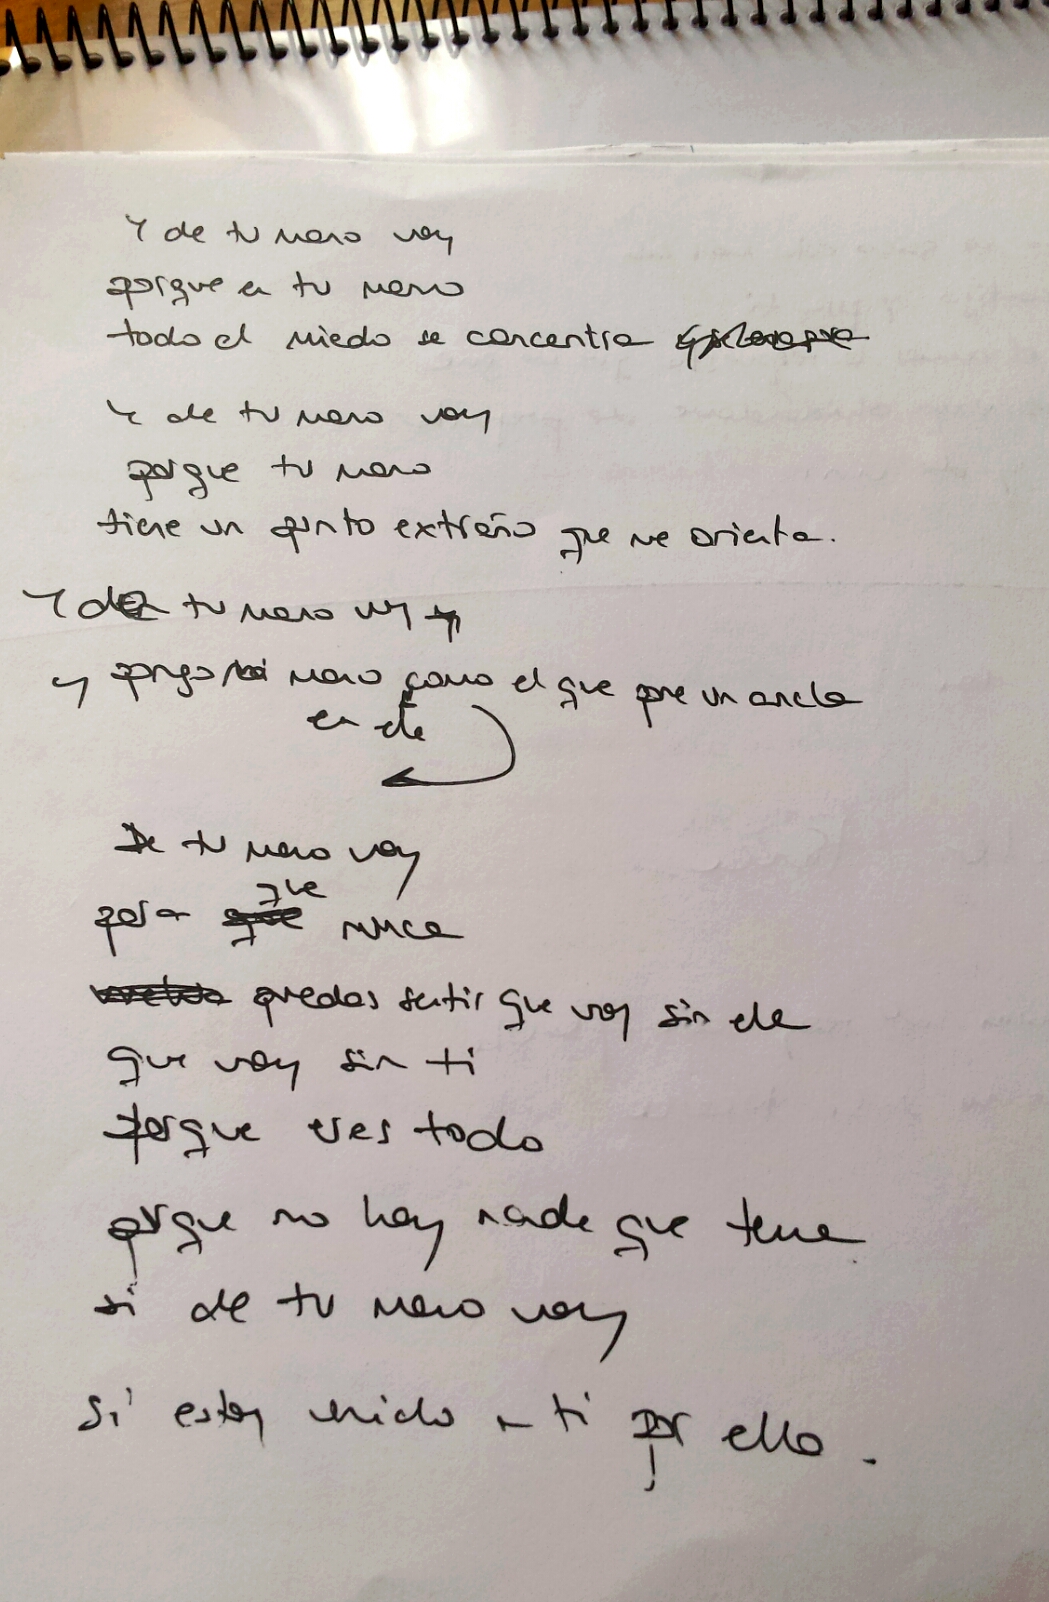 Y de tu mano voy
porque en tu mano
todo el miedo se concentra
Y de tu mano voy
porque tu mano
tiene un punto extraño que me orienta.
Y de tu mano voy y
y pongo mi mano como el que pone un ancla
en ella
De tu mano voy
para que nunca
puedas sentir que voy sin ella
que voy sin ti
porque eres todo
porque no hay nada que tema
si de tu mano voy
si estoy unido a ti por ello.